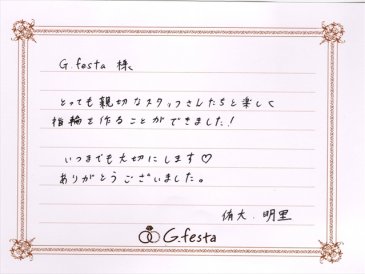 G.festa 様
とっても親切なスタッフさんたちと楽しく
指輪を作ることができました!
いつまでも大切にします♡
ありがとうございました。
侑大.明里
G.festa